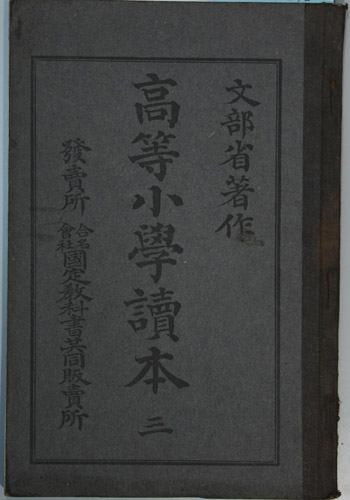 文部省著作
高等小學讀本 三
發賣所 合名會社國定教科書共同販賣所